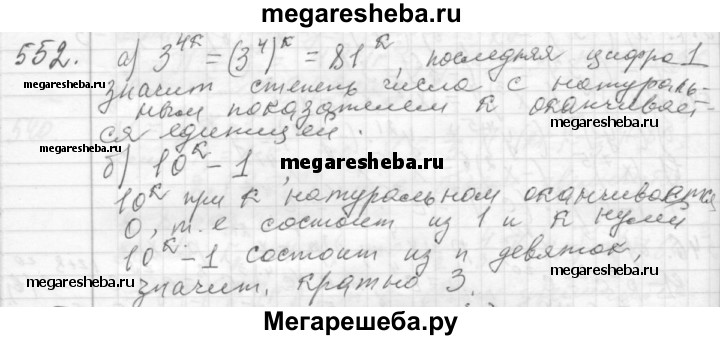 megaresheba.ru
552. а) 3^4к = (3^4)^к = 81^к, последняя цифра 1
megaresheba.ru
значит степень числа с натураль-
megaresheba.ru
ным показателем к оканчивает-
ся единицей.
б) 10^к - 1,
megaresheba.ru
10^к при к натуральном оканчивается
0, т.е состоит из 1 и к нулей
10^к - 1 состоит из п девяток,
megaresheba.ru
megaresheba.ru
значит, кратно 3.
Мегарешеба.ру